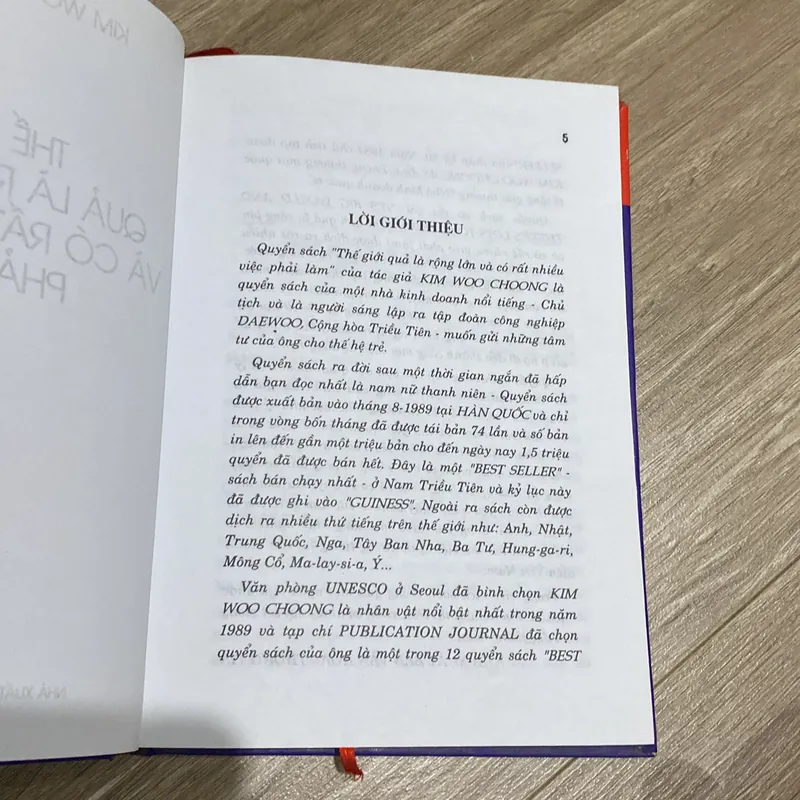 5
LỜI GIỚI THIỆU
Quyển sách "Thế giới quả là rộng lớn và có rất nhiều
việc phải làm" của tác giả KIM WOO CHOONG là
quyển sách của một nhà kinh doanh nổi tiếng - Chủ
tịch và là người sáng lập ra tập đoàn công nghiệp
DAEWOO, Cộng hòa Triều Tiên - muốn gửi những tâm
tư của ông cho thế hệ trẻ.
Quyển sách ra đời sau một thời gian ngắn đã hấp
dẫn bạn đọc nhất là nam nữ thanh niên - Quyển sách
được xuất bản vào tháng 8-1989 tại HÀN QUỐC và chỉ
trong vòng bốn tháng đã được tái bản 74 lần và số bản
in lên đến gần một triệu bản cho đến ngày nay 1,5 triệu
quyển đã được bán hết. Đây là một "BEST SELLER" -
sách bán chạy nhất - ở Nam Triều Tiên và kỷ lục này
đã được ghi vào "GUINESS". Ngoài ra sách còn được
dịch ra nhiều thứ tiếng trên thế giới như: Anh, Nhật,
Trung Quốc, Nga, Tây Ban Nha, Ba Tư, Hung-ga-ri,
Mông Cổ, Ma-lay-si-a, Ý...
Văn phòng UNESCO ở Seoul đã bình chọn KIM
WOO CHOONG là nhân vật nổi bật nhất trong năm
1989 và tạp chí PUBLICATION JOURNAL đã chọn
quyển sách của ông là một trong 12 quyển sách "BEST